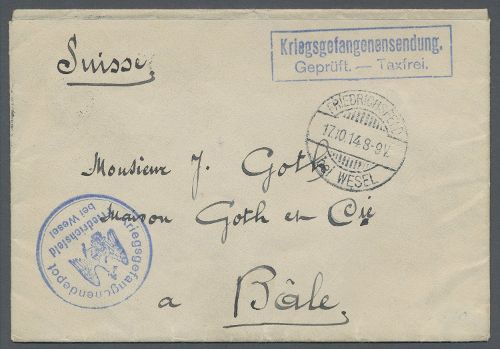 Kriegsgefangenensendung.
Geprüft. — Taxfrei.
Suisse.
FRIEDRICHSFELD
17.10.14.8-9V.
bei WESEL
Monsieur J. Goth
Maison Goth et Cie
a Bâle.
Kriegsgefangenendepot
Friedrichsfeld
bei Wesel